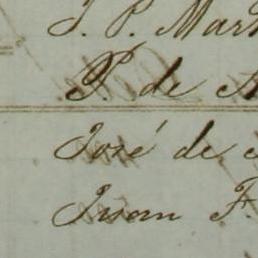 J. P. Mar
P. de
José de
Juan F.